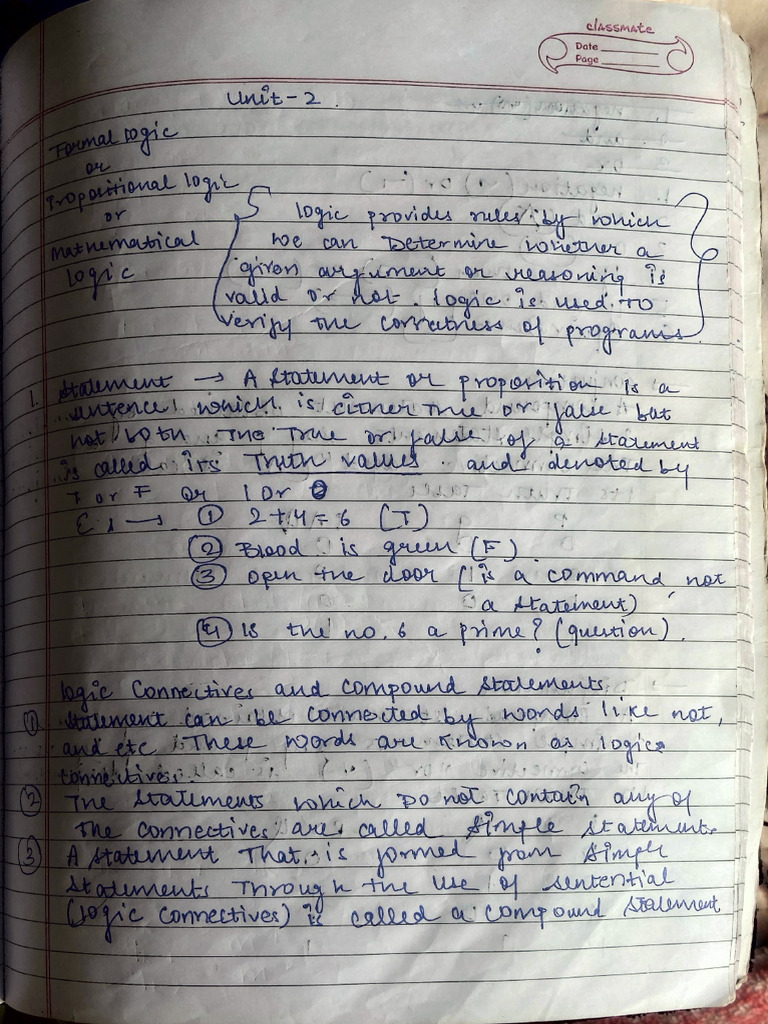 classmate
Date
Page
Unit-2.
Formal logic
or
Propositional logic
or
Mathematical
logic
logic provides rules by which
we can Determine whether a
given argument or reasoning is
valid or not. logic is used to
verify the corretness of programs.
1. Statement → A statement or proposition is a
sentence which is either true or false but
not both. The True or false of a statement
is called its Truth values. and denoted by
T or F or 1 or 0
→ ① 2+4=6 (T)
② Blood is green (F)
③ open the door (is a command, not
a statement)
④ Is the no. 6 a prime? (question).
logic Connectives and compound statements.
① Statement can be connected by words like not,
and etc. These words are known as logic
connectives.
② The statements which Do not contain any of
the connectives are called simple statement.
③ A statement That is formed from simple
statements Through the use of sentential
(logic connectives) is called a compound statement